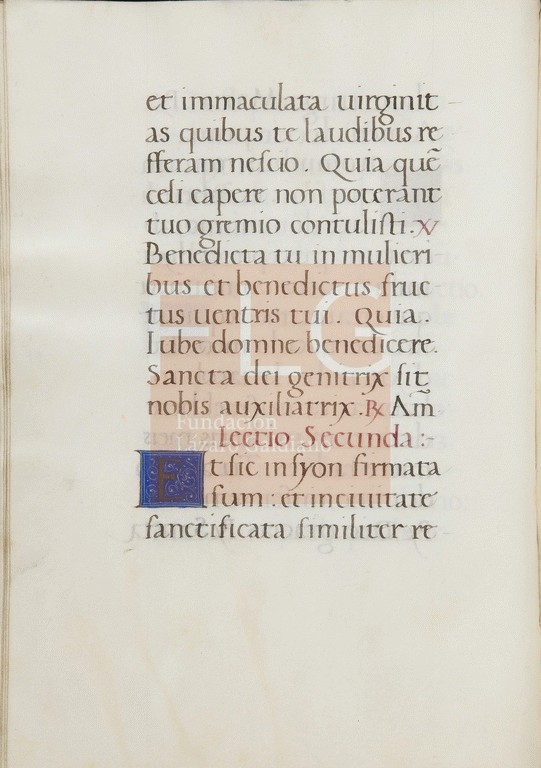 et immaculata uirginit
as quibus te laudibus re
fferam nescio. Quia quē
celi capere non poterant
tuo gremio contulisti. ℣
Benedicta tu in mulieri
bus et benedictus fruc
tus uentris tui. Quia.
Iube domne benedicere.
Sancta dei genitrix sit
nobis auxiliatrix. ℞ Am̄
Lectio Secunda:-
Et sic in syon firmata
sum: et inciuitate
sanctificata similiter re
FLG
Fundación
Lázaro Galdiano